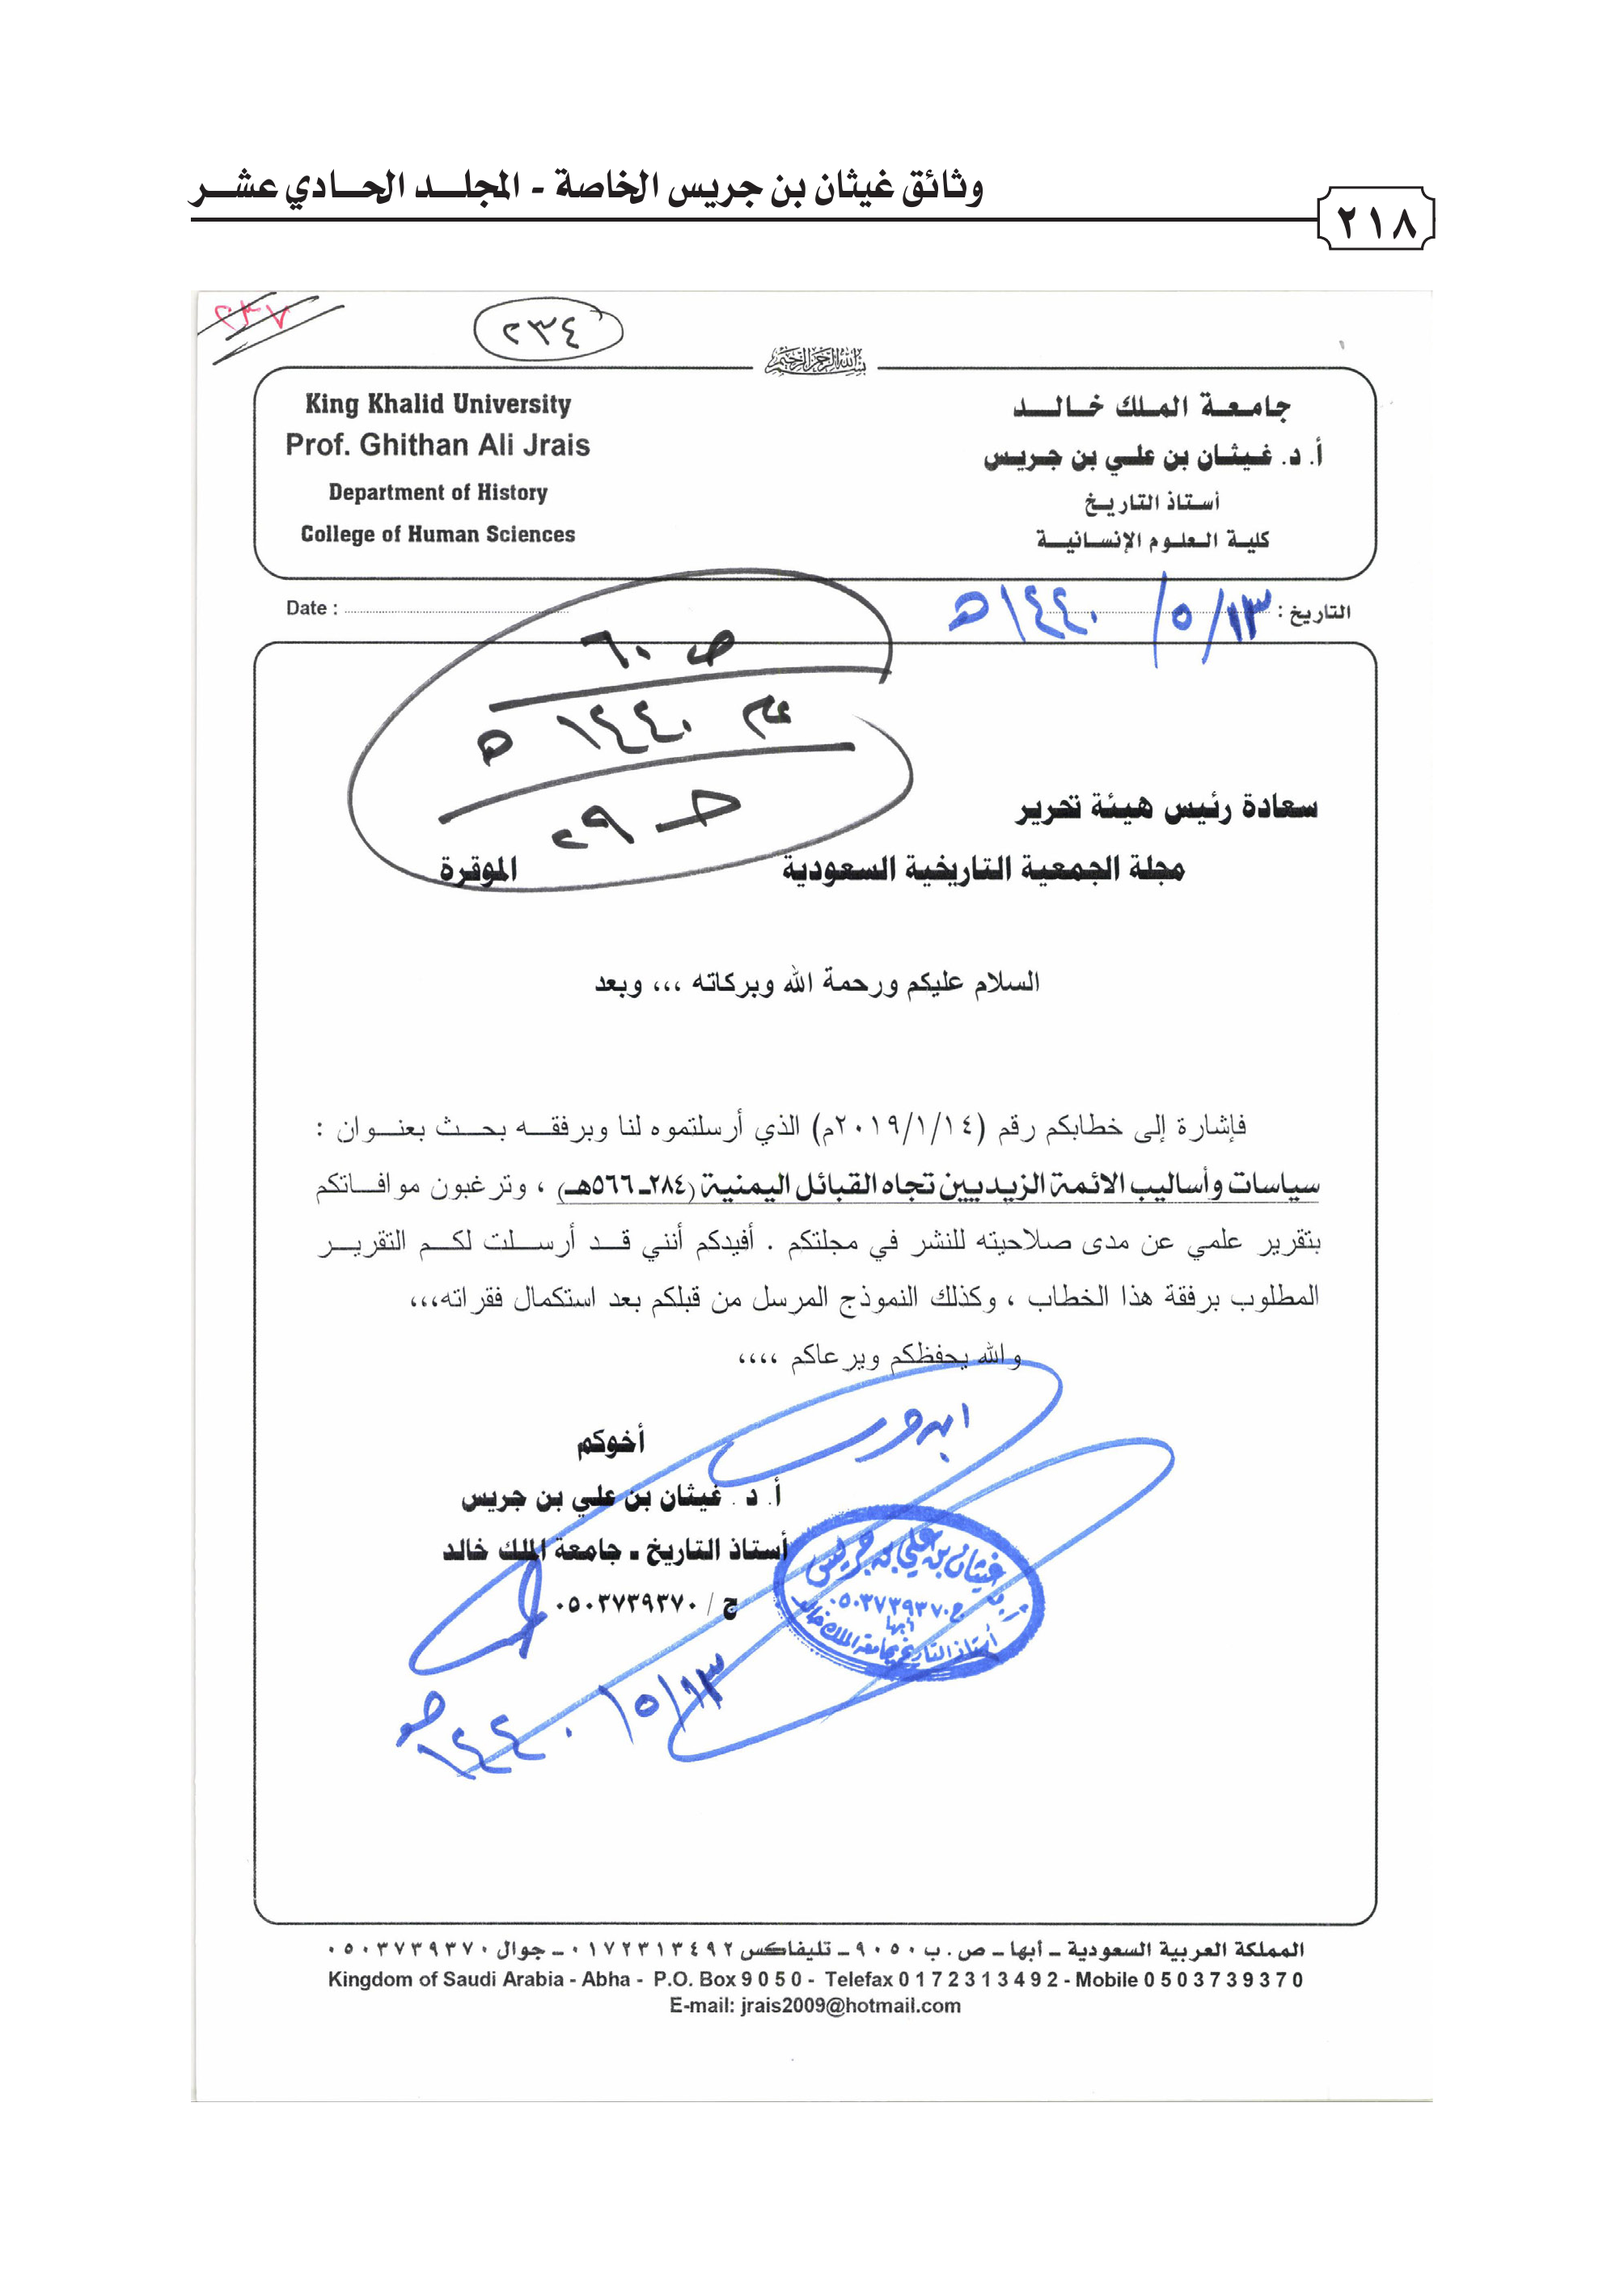 وثائق غيثان بن جريس الخاصة - المجلـــد الحـــادي عشـــر
٢١٨
٢٣٧
٢٣٤
بسم الله الرحمن الرحيم
جامعـة الملك خـالـد
أ. د. غيثـان بن علـي بن جـريس
أستـاذ التاريـخ
كليـة العلـوم الإنسـانيـة
King Khalid University
Prof. Ghithan Ali Jrais
Department of History
College of Human Sciences
التاريخ : ١٣/ ٥ / ١٤٤٠هـ
Date :
ص ٦٠
عام ١٤٤٠ هـ
حـ ٢٩
سعادة رئيس هيئة تحرير
مجلة الجمعية التاريخية السعودية الموقرة
السلام عليكم ورحمة الله وبركاته ،،، وبعد
فإشارة إلى خطابكم رقم (٢٠١٩/١/١٤م) الذي أرسلتموه لنا وبرفقـــه بحـــث بعنـــوان :
سياسات وأساليب الائمة الزيديين تجاه القبائل اليمنية (٢٨٤ـ ٥٦٦هـ) ، وترغبون موافـــاتكم
بتقرير علمي عن مدى صلاحيته للنشر في مجلتكم . أفيدكم أنني قـــد أرســـلت لكـــم التقريـــر
المطلوب برفقة هذا الخطاب ، وكذلك النموذج المرسل من قبلكم بعد استكمال فقراته،،،
والله يحفظكم ويرعاكم ،،،،
ابن جريس
أخوكم
أ. د . غيثان بن علي بن جريس
أستاذ التاريخ ـ جامعة الملك خالد
ج / ٠٥٠٣٧٣٩٣٧٠
غيثان بن علي بن جريس
ج ٠٥٠٣٧٣٩٣٧٠
أبها
أستاذ التاريخ بجامعة الملك خالد
١٣/ ٥/ ١٤٤٠هـ
المملكة العربية السعودية ـ أبها ـ ص . ب ٩٠٥٠ ـ تليفاكس ٠١٧٢٣١٣٤٩٢ ـ جوال ٠٥٠٣٧٣٩٣٧٠
Kingdom of Saudi Arabia - Abha - P.O. Box 9 0 5 0 - Telefax 0 1 7 2 3 1 3 4 9 2 - Mobile 0 5 0 3 7 3 9 3 7 0
E-mail: jrais2009@hotmail.com